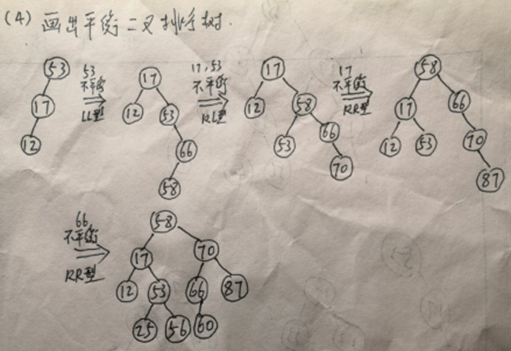 (4) 画出平衡二叉排序树.
53 17 12
53 不平衡 LL型
17 12 53 66 58
17,53 不平衡 RL型
17 12 58 53 66 70
17 不平衡 RR型
58 17 66 12 53 70 87
66 不平衡 RR型
58 17 70 12 53 66 87 25 56 60